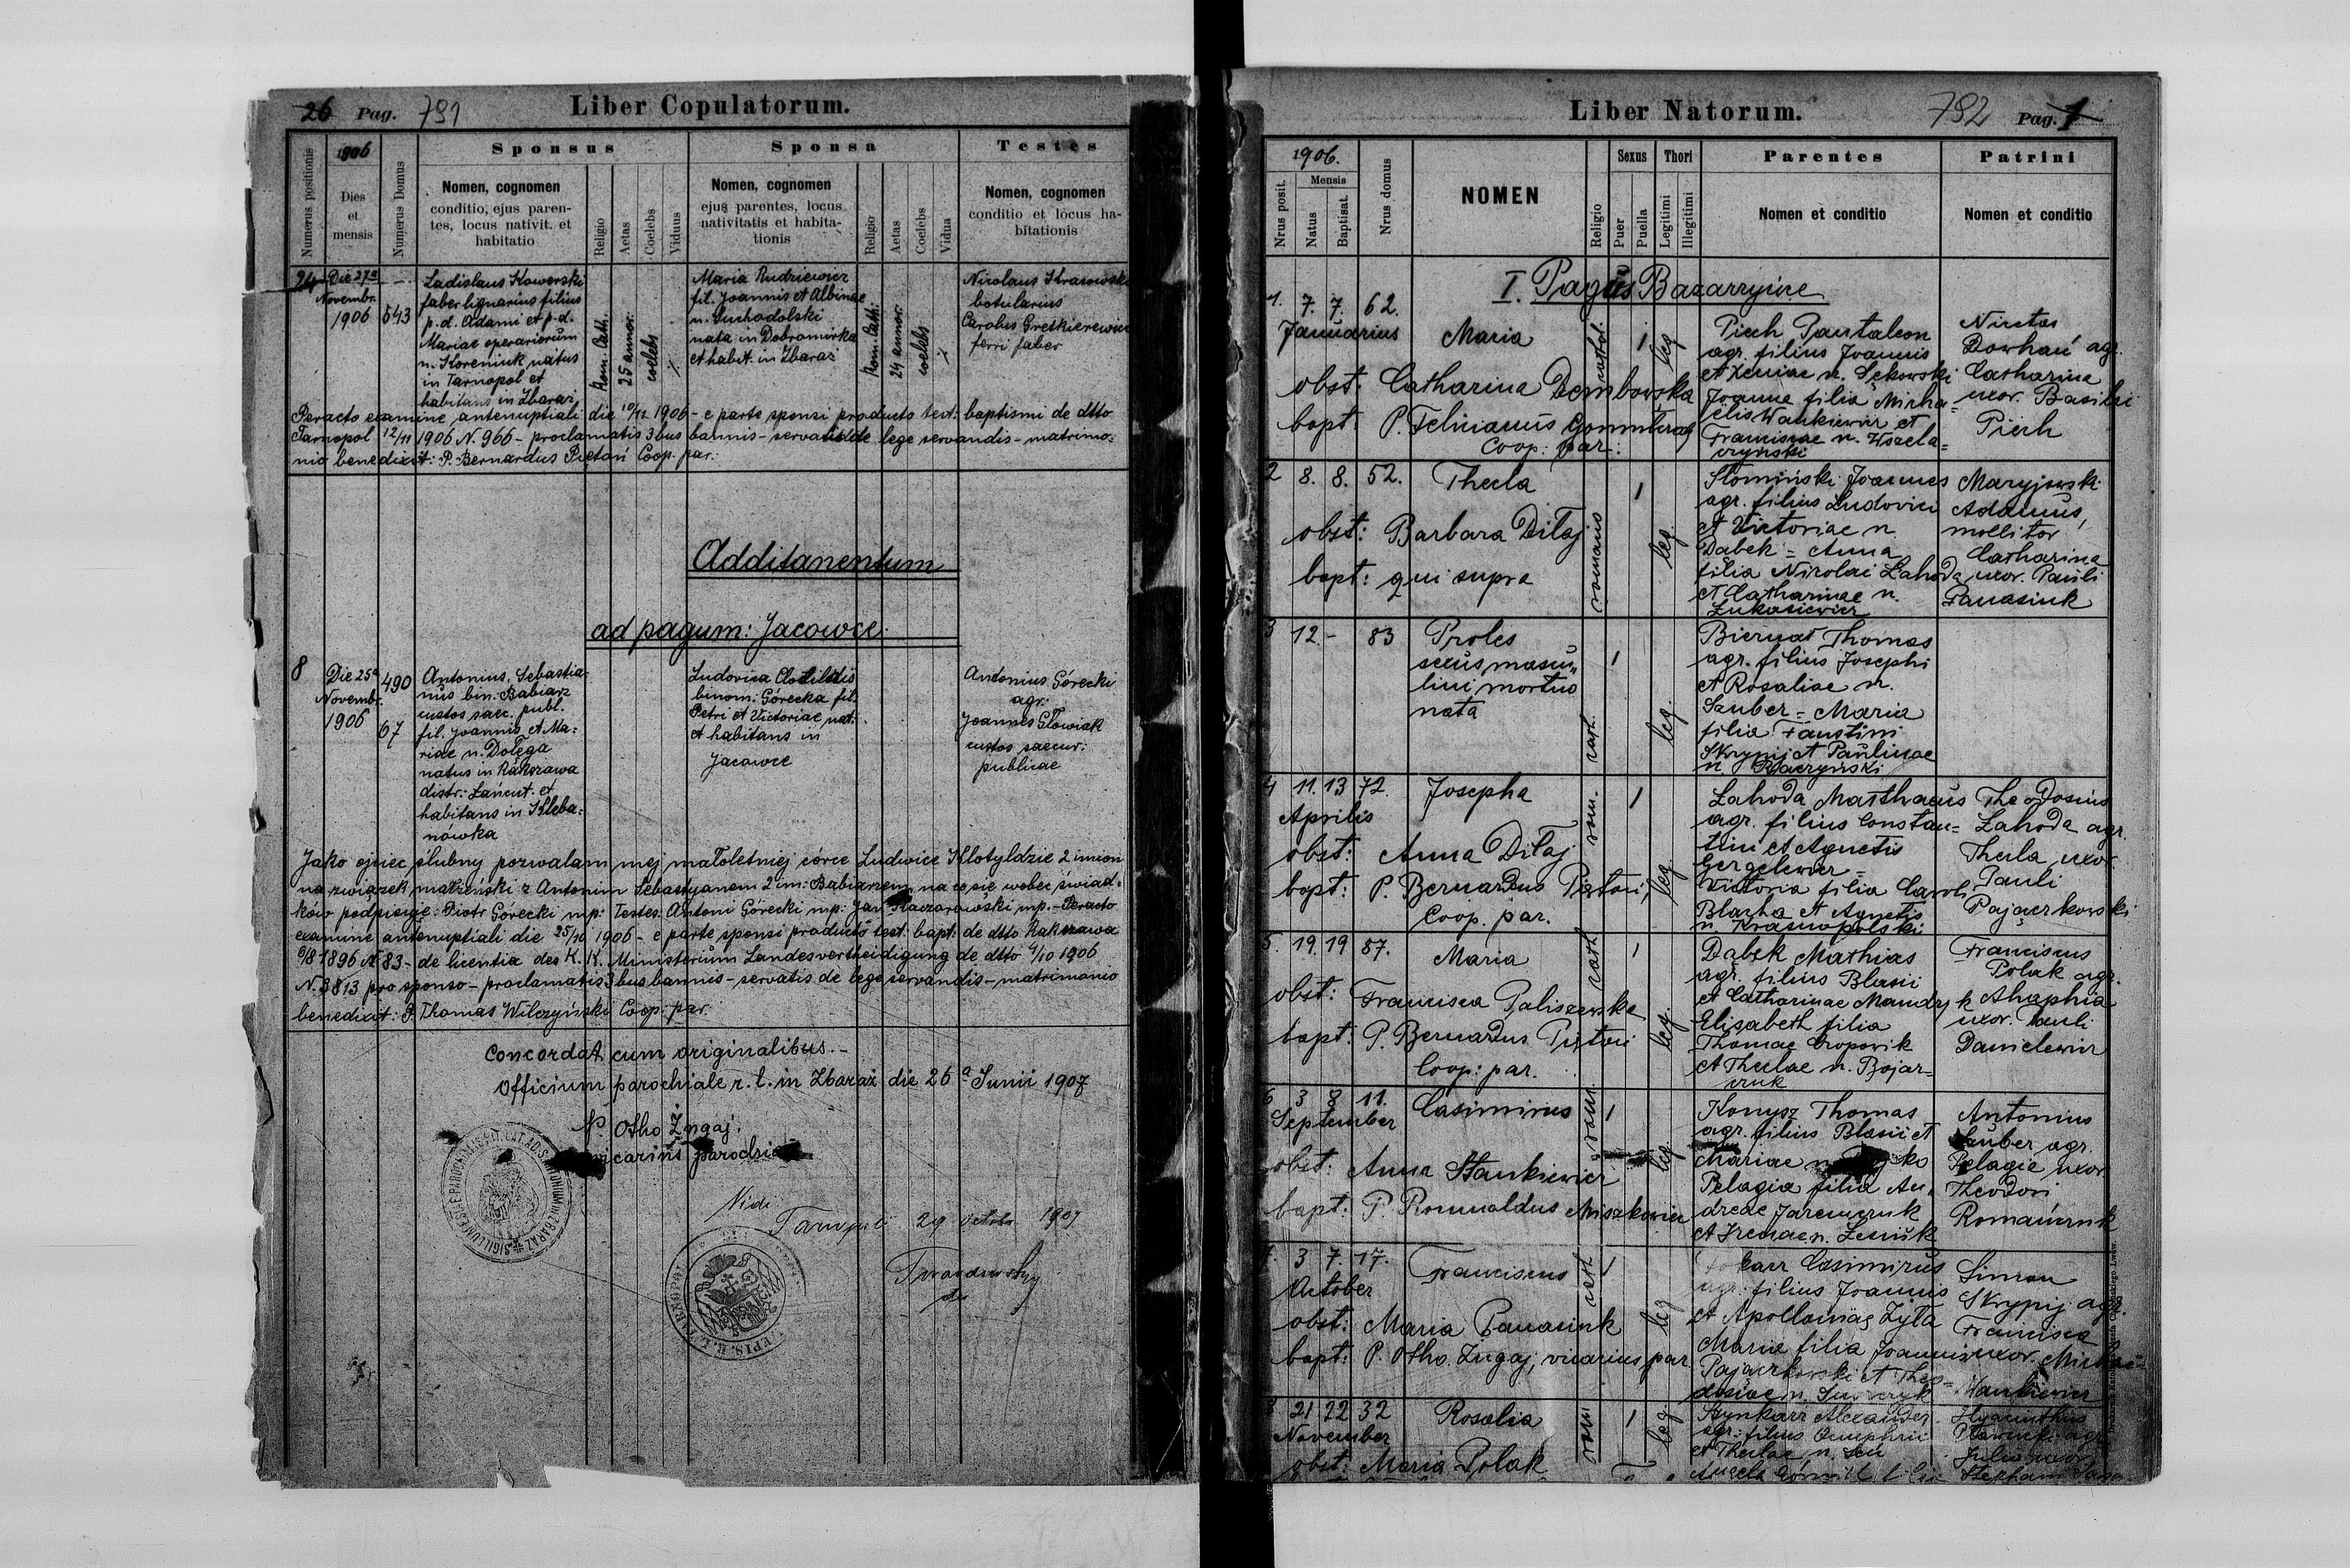 26 Pag. 791 Liber Copulatorum.
Numerus positionis
1906
Dies
et
mensis
Numerus Domus
Sponsus
Nomen, cognomen
conditio, ejus paren-
tes, locus nativit. et
habitatio
Religio
Aetas
Coelebs
Viduus
Sponsa
Nomen, cognomen
ejus parentes, locus
nativitatis et habita-
tionis
Religio
Aetas
Coelebs
Vidua
Testes
Nomen, cognomen
conditio et locus ha-
bitationis
24
Die 27a
Novembr.
1906
543
Ladislaus Kowerski
faber lignarius filius
p.d. Adami et p.d.
Mariae operariorum
n. Koreniuk natus
in Tarnopol et
habitans in Zbaraż
Rom. Cath.
25 annor.
coelebs
Maria Rudziewicz
fil. Joannis et Albinae
n. Suchodolski
nata in Dobromirka
et habit. in Zbaraż
Rom. Cath.
24 annor.
coelebs
Nicolaus
botularius
Carolus
ferri faber
Peracto examine antenuptiali die 10/11 1906 - e parte sponsi producto test: baptismi de dtto
Tarnopol 12/11 1906 N. 966 - proclamatis 3bus bannis - servatis de lege servandis - matrimo=
nio benedixit: P. Bernardus Pietoń Coop. par:
Additamentum
ad pagum: Jacowce.
8
Die 25a
Novembr.
1906
490
67
Antonius, Sebastia=
nus bin. Babiarz
custos saec. publ.
fil. Joannis et Ma=
riae n. Dołęga
natus in Rakszawa
distr: Łańcut. et
habitans in Kleba=
nówka
Ludovica Clotildis
binom. Górecka fil.
Petri et Victoriae nat.
et habitans in
Jacowce
Antonius Górecki
agr:
Joannes Głowiak
custos saecur:
publicae
Jako ojciec ślubny pozwalam mej małoletniej córce Ludwice Klotyldzie 2 imion
na związek małżeński z Antonim Sebastyanem 2 im: Babiarzem, na co się wobec świad=
ków podpisuję: Piotr Górecki mp: Testes: Antoni Górecki mp: Jan Kaczorowski mp. - Peracto
examine antenuptiali die 25/10 1906 - e parte sponsi producto test: bapt: de dtto Rakszawa
1896 N 83 - de licentia des K. K. Ministerium Landesvertheidigung de dtto 4/10 1906
N. 3813 pro sponso - proclamatis 3bus bannis - servatis de lege servandis - matrimonio
benedixit: P. Thomas Wilczyński Coop. par.
Concordat cum originalibus. -
Officium parochiale r. l. in Zbaraż die 26a Junii 1907
P. Otho Żngaj.
vicarius parochiae
Vidi
Tarnopoli 29 Octobr 1907
Liber Natorum. 792 Pag. 1
Nrus posit.
1906.
Mensis
Natus
Baptisat.
Nrus domus
NOMEN
Religio
Sexus
Puer
Puella
Thori
Legitimi
Illegitimi
Parentes
Nomen et conditio
Patrini
Nomen et conditio
I. Pagus Bazarzyńce
1. 7. 7. 62.
Januarius
Maria
cathol.
1
leg
obst: Catharina Dembowska
bapt: P. Felicianus
Coop: par:
Piech Pantaleon
agr. filius Joannis
et Xeniae n. Sękowski
Joanna filia Micha=
elis Wankiewicz et
Franciscae n.
Nicetas
Dowhań agr.
Catharina
uxor. Basilii
Piech
2 8. 8. 52.
Thecla
romano
1
leg.
obst: Barbara Diłaj
bapt: qui supra
Słomiński Joannes
agr. filius Ludovici
et Victoriae n.
Dąbek = Anna
filia Nicolai Lahoda
et Catharinae n.
Łukasiewicz
Maryjowski
Adamus,
mollitor
Catharina
uxor. Pauli
Panasiuk
3 12. - 83
Proles
sexus mascu=
lini mortuo
nata
cath.
1
leg.
Biernat Thomas
agr. filius Josephi
et Rosaliae n.
Sauber = Maria
filia Faustini
Skrypij et Paulinae
n. Raczyński
4 11. 13 72.
Aprilis
Josepha
rom.
1
leg
obst: Anna Diłaj
bapt: P. Bernardus Pietoń,
Coop. par.
Lahoda Matthaeus
agr. filius Constan=
tini et Agnetis
Gergelewicz =
Victoria filia Caroli
Blacha et Agnetis
n. Krasnopolski
Theodosius
Lahoda agr.
Thecla uxor.
Pauli
Pajączkowski
5. 19. 19 87.
Maria
cath
1
leg.
obst: Francisca Paliszewska
bapt: P. Bernardus Pietoń
Coop: par.
Dąbek Mathias
agr. filius Blasii
et Catharinae Mandryk
Elisabeth filia
Thomae Cropowik
et Theclae n. Bojar=
czuk
Franciscus
Polak agr.
Ahaphia
uxor. Pauli
Danielewicz
6 3 8 11.
September
Casimirus
rom.
1
leg.
obst: Anna Stankiewicz
bapt: P. Romualdus Miszkowicz
Konysz Thomas
agr. filius Blasii et
Mariae n.
Pelagia filia An=
dreae Jaremczuk
et Irenae n. Leśniuk
Antonius
Sauber agr.
Pelagie uxor
Theodori
Romańczuk
7. 3 7. 17.
October
Franciscus
cath
1
leg
obst: Maria Panasiuk
bapt: P. Otho Żngaj, vicarius par
Casimirus
agr. filius Joannis
et Apolloniae Żyła
Maria filia Joannis
Pajączkowski et Theo=
dosiae n.
Simon
Skrypij. agr.
Francisca
uxor. Michae=
Wankiewicz
8 21 22 32
November
Rosalia
rom
1
leg
obst: Maria Polak
Szynkarz Alexander
agr. filius Onuphrii
et Theclae n.
Hyacinthus
agr.
Julia uxor